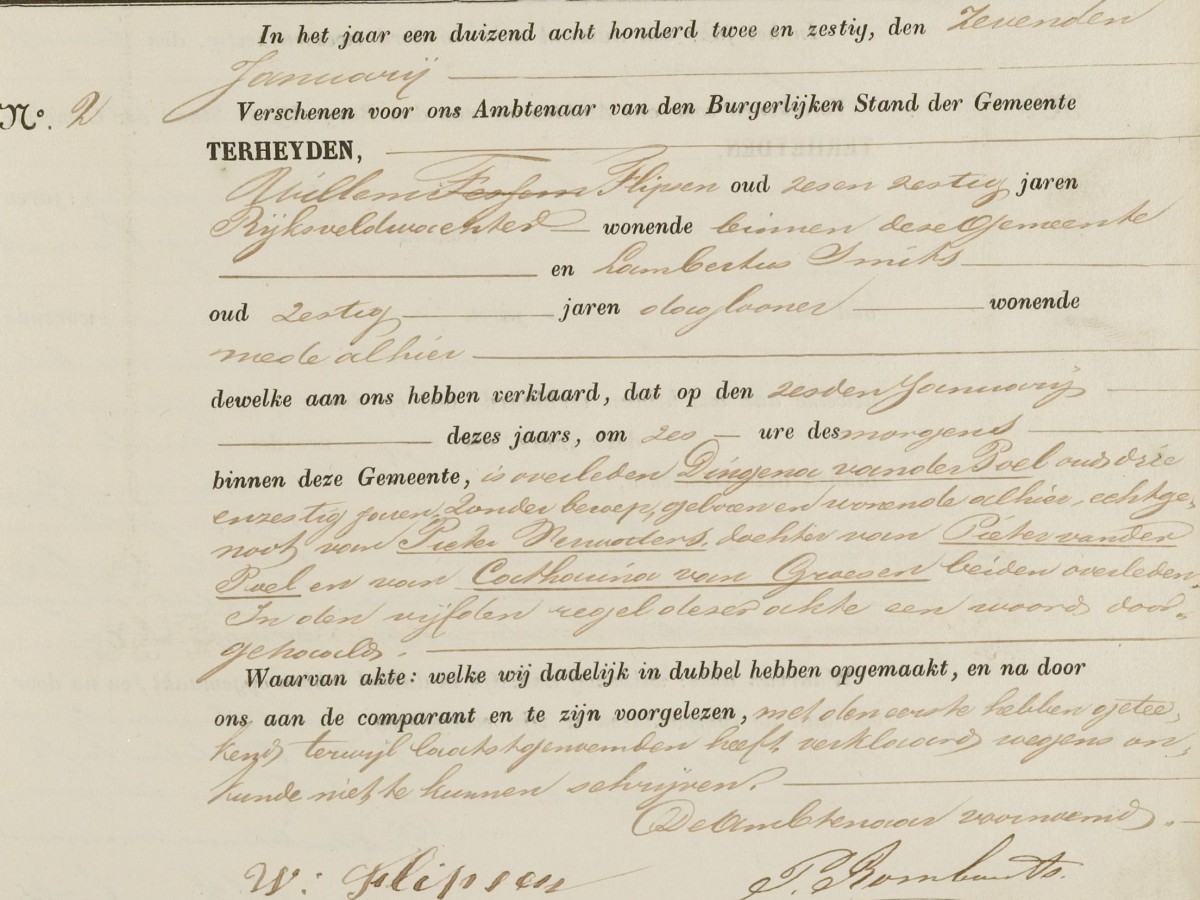 In het jaar een duizend acht honderd twee en zestig, den zevenden
Januarij
No. 2 Verschenen voor ons Ambtenaar van den Burgerlijken Stand der Gemeente
TERHEYDEN,
Willem Flipsen oud zes en zestig jaren
Rijksveldwachter wonende binnen deze Gemeente
en Lambertus Smits
oud zestig jaren daglooner wonende
mede alhier
dewelke aan ons hebben verklaard, dat op den zesden Januarij
dezes jaars, om zes ure des morgens
binnen deze Gemeente, is overleden Dingena van der Poel oud drie
en zestig jaren, zonder beroep, geboren en wonende alhier, echtge,
noot van Pieter Verwaters, dochter van Pieter van der
Poel en van Catharina van Groesen beiden overleden.
In den vijfden regel dezer akte een woord door„
gehaald.
Waarvan akte: welke wij dadelijk in dubbel hebben opgemaakt, en na door
ons aan de comparant en te zijn voorgelezen, met den eerste hebben getee,
kend, terwijl laatstgenoemden heeft verklaard wegens on,
kunde niet te kunnen schrijven.
De Ambtenaar voornoemd.
W: Flipsen P. Rombouts.